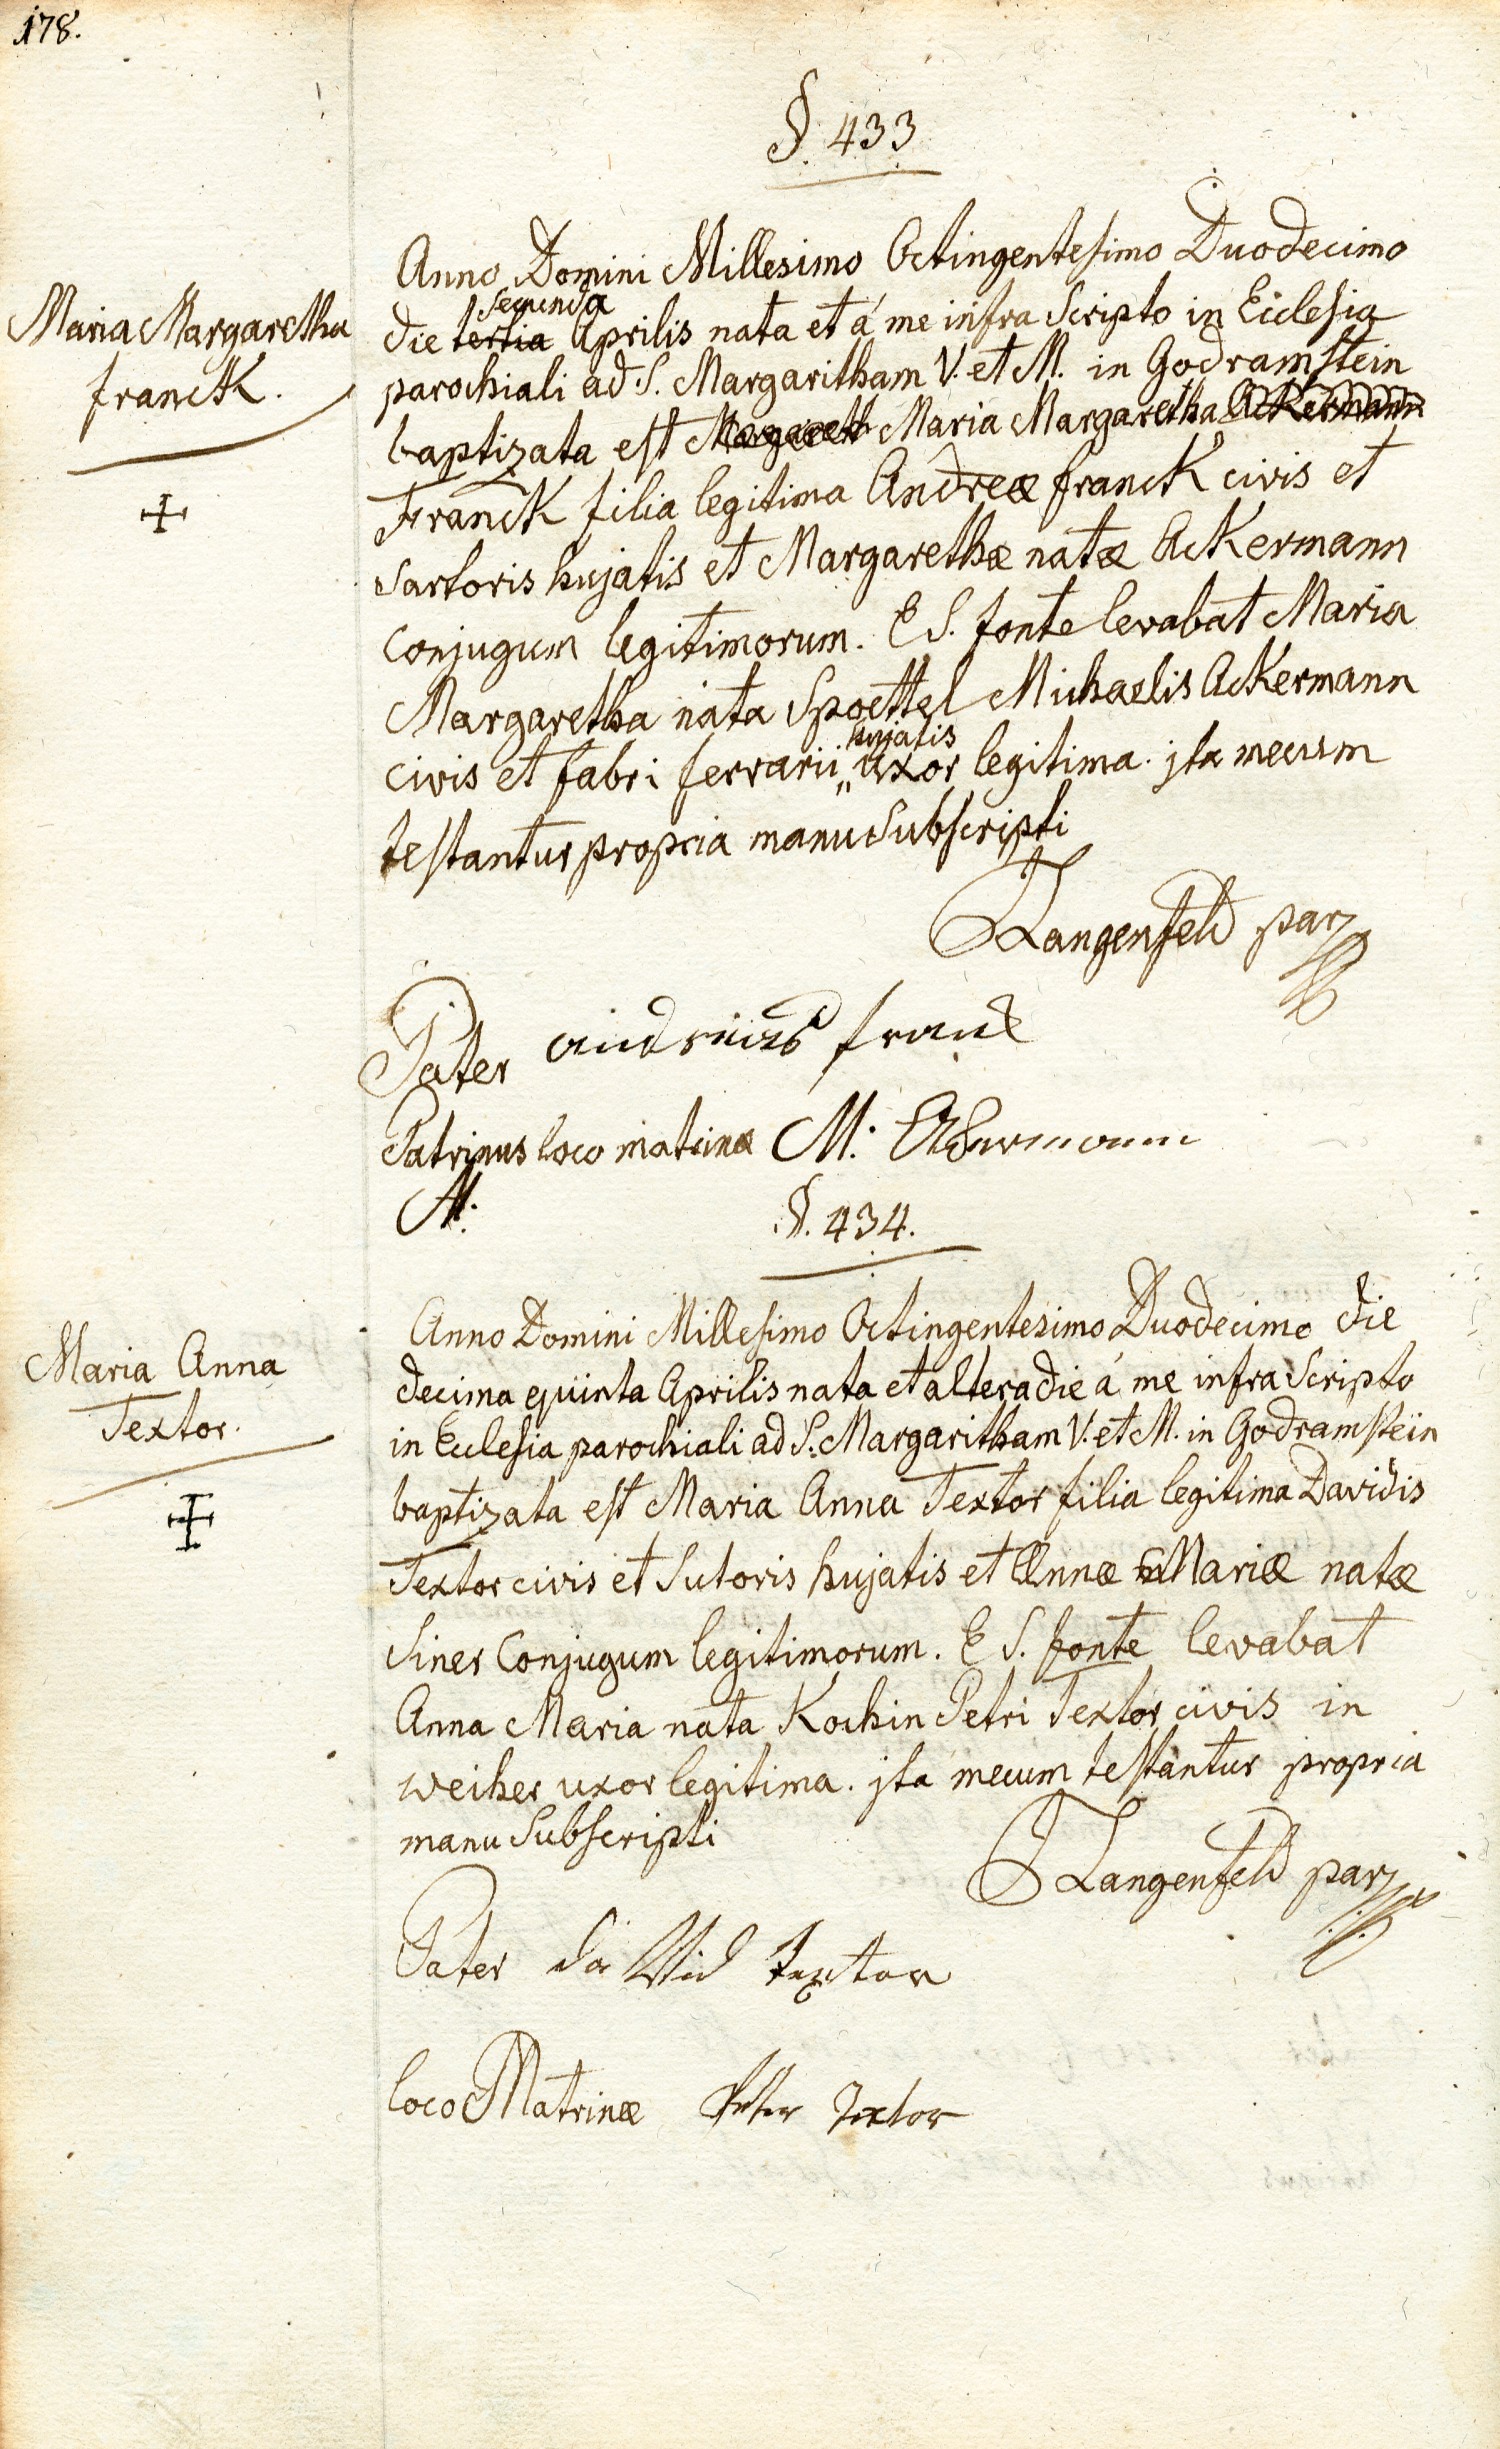 178.
§. 433
Maria Margaretha
franck.
Anno Domini Millesimo Octingentesimo Duodecimo
secunda
die tertia Aprilis nata et á me infra Scripto in Ecclesia
parochiali ad S. Margaritham V. et M. in Godramstein
baptizata est Margareth Maria Margaretha Ackermann
Franck filia legitima Andreæ franck civis et
sartoris hujatis et Margarethæ natæ Ackermann
conjugum legitimorum. E S. fonte levabat Maria
Margaretha nata Spoettel Michaelis Ackermann
hujatis
civis et fabri ferrarii „ uxor legitima. jta mecum
testantur propria manu Subscripti
Langenfeld par
Pater andreas franck
Patrinus loco matrinæ M: Ackermann
M:
§. 434.
Maria Anna
Textor.
Anno Domini Millesimo Octingentesimo Duodecimo die
decima quinta Aprilis nata et altera die á me infra Scripto
in Ecclesia parochiali ad S. Margaritham V. et M. in Godramstein
baptizata est Maria Anna Textor filia legitima Davidis
Textor civis et Sutoris hujatis et Annæ Mariæ natæ
Siner Conjugum legitimorum. E S. fonte levabat
Anna Maria nata Kochin Petri Textor civis in
weiher uxor legitima. jta mecum testantur propria
manu Subscripti
Langenfeld par
Pater da Vid Textor
loco Matrinæ Peter Textor